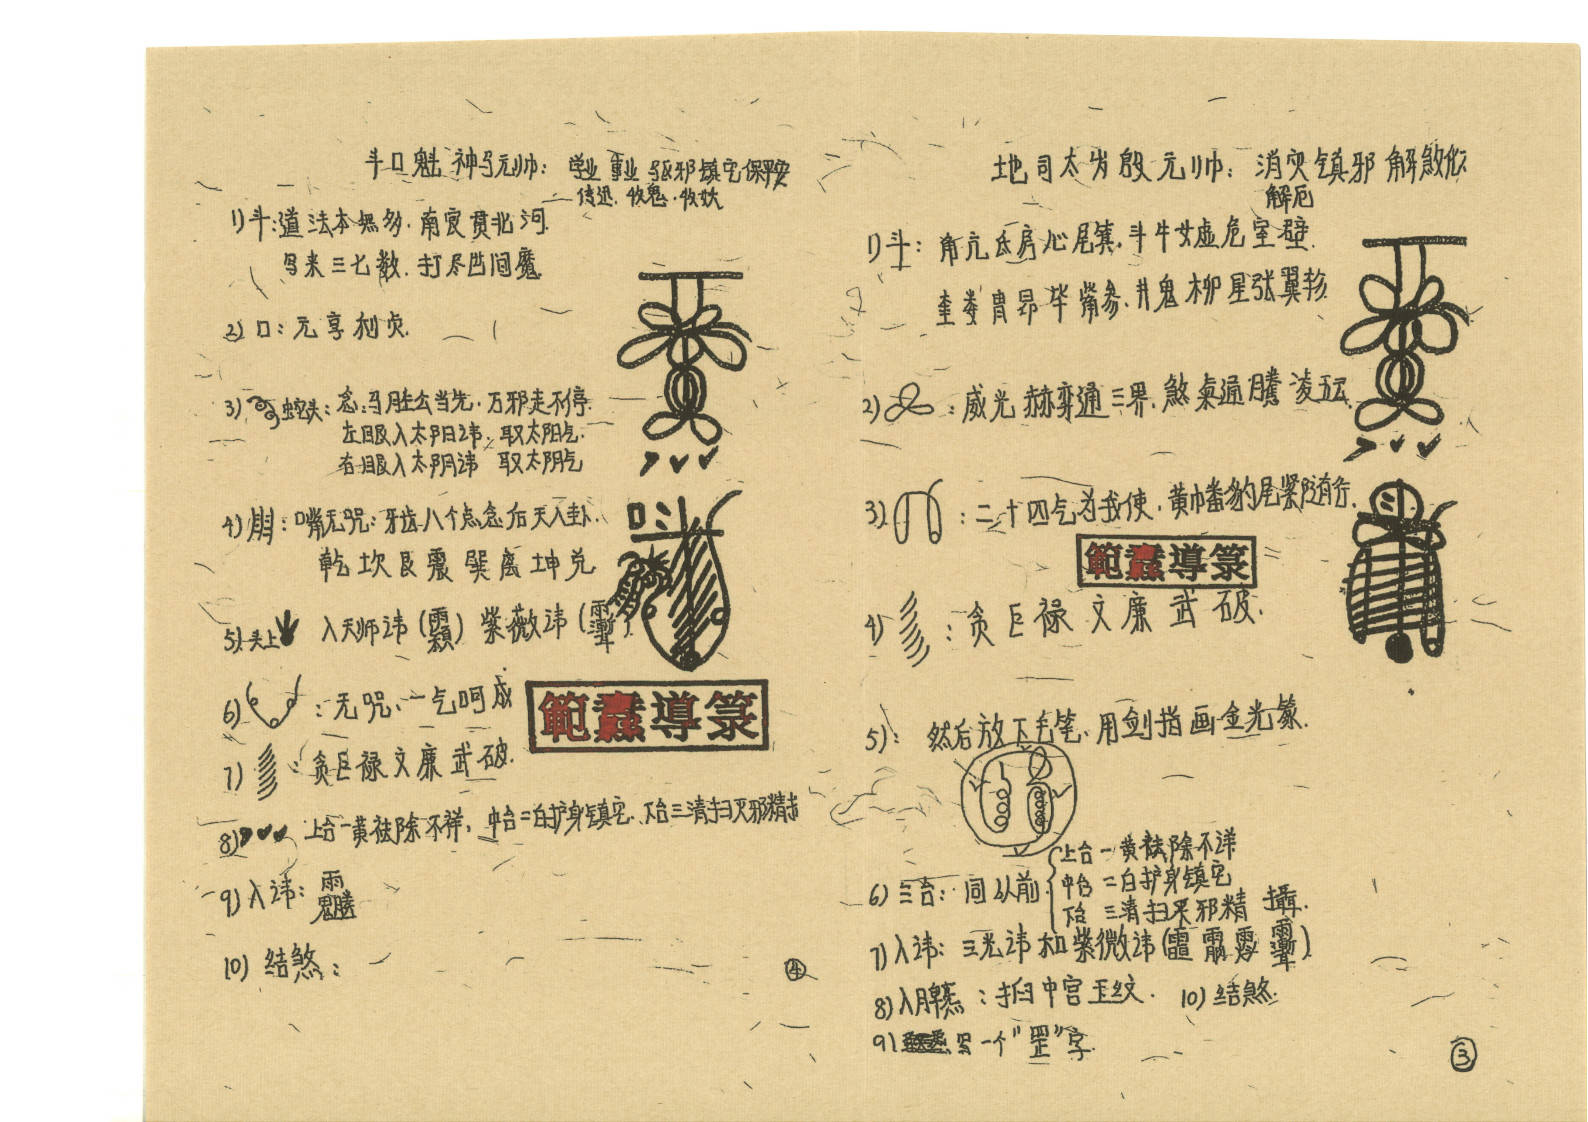 地司太岁殷元帅：消灾镇邪解煞化
解厄
1)斗：角亢氐房心尾箕.斗牛女虚危室壁.
奎娄胃昴毕觜参.井鬼柳星张翼轸.
2) ：威光赫奕通三界.煞桌通腾凌五云.
3) ：二十四气为我使.黄巾番豹尾紧随行.
範蠢導箓
4) ：贪巨禄文廉武破.
5)：然后放下毛笔.用剑指画金光篆.
6)三台：同以前
上台一黄祛除不洋
中台二白护身镇宅
下台三清扫灭邪精 攝.
7)入讳：三光讳和紫微讳( )
8)入脾 ：掐中宫玉纹. 10)结煞.
9) 写一个"罡"字.
③
斗口魁神马元帅：学业 事业 驱邪镇宅保平安
传迅.收鬼.收妖
1)斗：道法本無多.南宸贯北河.
马来三七数.打尽世间魔.
2)口：元享利贞.
3) 蛇头：念：马胜么当先.万邪走不停.
左眼入太阳讳.取太阳气.
右眼入太阴讳 取太阴气
4) ：嘴无咒：牙齿八个点念后天八卦.
乾坎艮震巽离坤兑
5)头上 入天师讳( ) 紫薇讳( ).
6) ：无咒、一气呵成
範蠢導箓
7) ：贪巨禄文廉武破.
8) 上台一黄祛除不祥，中台二白护身镇宅.下台三清扫灭邪精
9)入讳：
10)结煞：
④